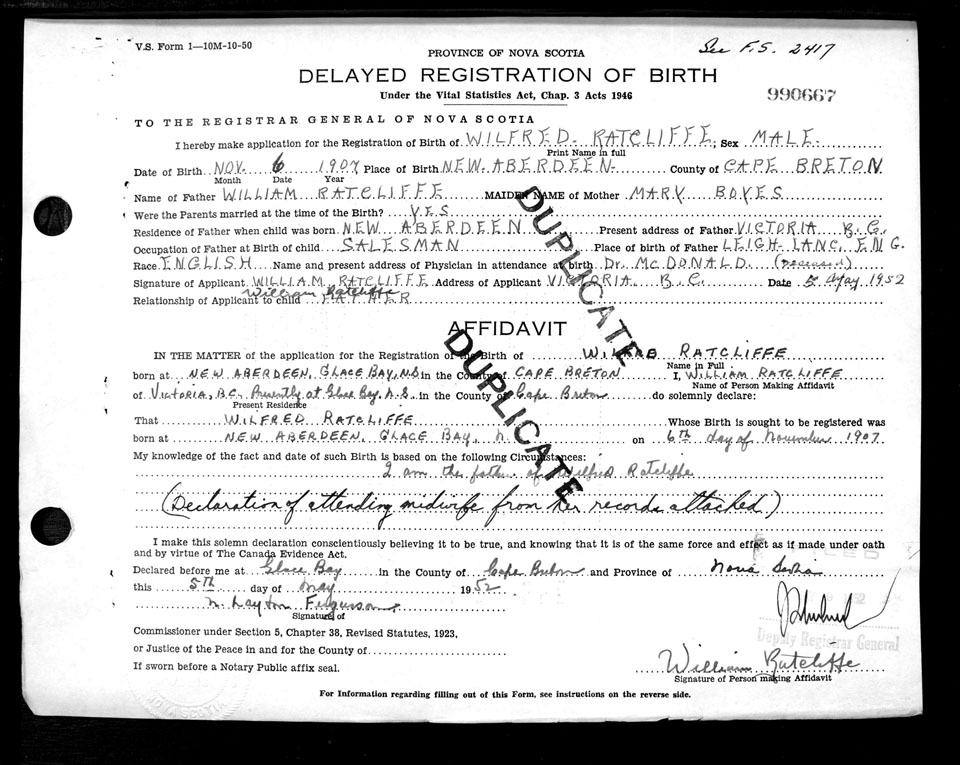 V.S. Form 1—10M-10-50
See F.S. 2417
PROVINCE OF NOVA SCOTIA
DELAYED REGISTRATION OF BIRTH
Under the Vital Statistics Act, Chap. 3 Acts 1946
990667
TO THE REGISTRAR GENERAL OF NOVA SCOTIA
I hereby make application for the Registration of Birth of WILFRED RATCLIFFE; Sex MALE
Print Name in full
Date of Birth NOV. 6 1907 Place of Birth NEW ABERDEEN County of CAPE BRETON
Month Date Year
Name of Father WILLIAM RATCLIFFE MAIDEN NAME of Mother MARY BOYES
Were the Parents married at the time of the Birth? YES
Residence of Father when child was born NEW ABERDEEN Present address of Father VICTORIA B.C.
Occupation of Father at Birth of child SALESMAN Place of birth of Father LEIGH LANC. ENG.
Race ENGLISH Name and present address of Physician in attendance at birth Dr. McDONALD (Deceased)
Signature of Applicant WILLIAM RATCLIFFE Address of Applicant VICTORIA B.C. Date 5 May 1952
William Ratcliffe
Relationship of Applicant to child FATHER
AFFIDAVIT
IN THE MATTER of the application for the Registration of the Birth of WILFRED RATCLIFFE
Name in Full
born at NEW ABERDEEN, GLACE BAY, N.S. in the County of CAPE BRETON I, WILLIAM RATCLIFFE
Name of Person Making Affidavit
of VICTORIA, B.C. Presently at Glace Bay, N.S. in the County of Cape Breton do solemnly declare:
Present Residence
That WILFRED RATCLIFFE Whose Birth is sought to be registered was
born at NEW ABERDEEN, GLACE BAY, N. on 6th day of November 1907
My knowledge of the fact and date of such Birth is based on the following Circumstances:
I am the father of Wilfred Ratcliffe
(Declaration of attending midwife from her records attached)
I make this solemn declaration conscientiously believing it to be true, and knowing that it is of the same force and effect as if made under oath
and by virtue of The Canada Evidence Act.
FILED
Declared before me at Glace Bay in the County of Cape Breton and Province of Nova Scotia
this 5th day of May 1952
N. Layton Fergusson
Signature of
Commissioner under Section 5, Chapter 38, Revised Statutes, 1923,
Deputy Registrar General
or Justice of the Peace in and for the County of
If sworn before a Notary Public affix seal.
William Ratcliffe
Signature of Person making Affidavit
For Information regarding filling out of this Form, see instructions on the reverse side.
DUPLICATE
DUPLICATE
NOVA SCOTIA